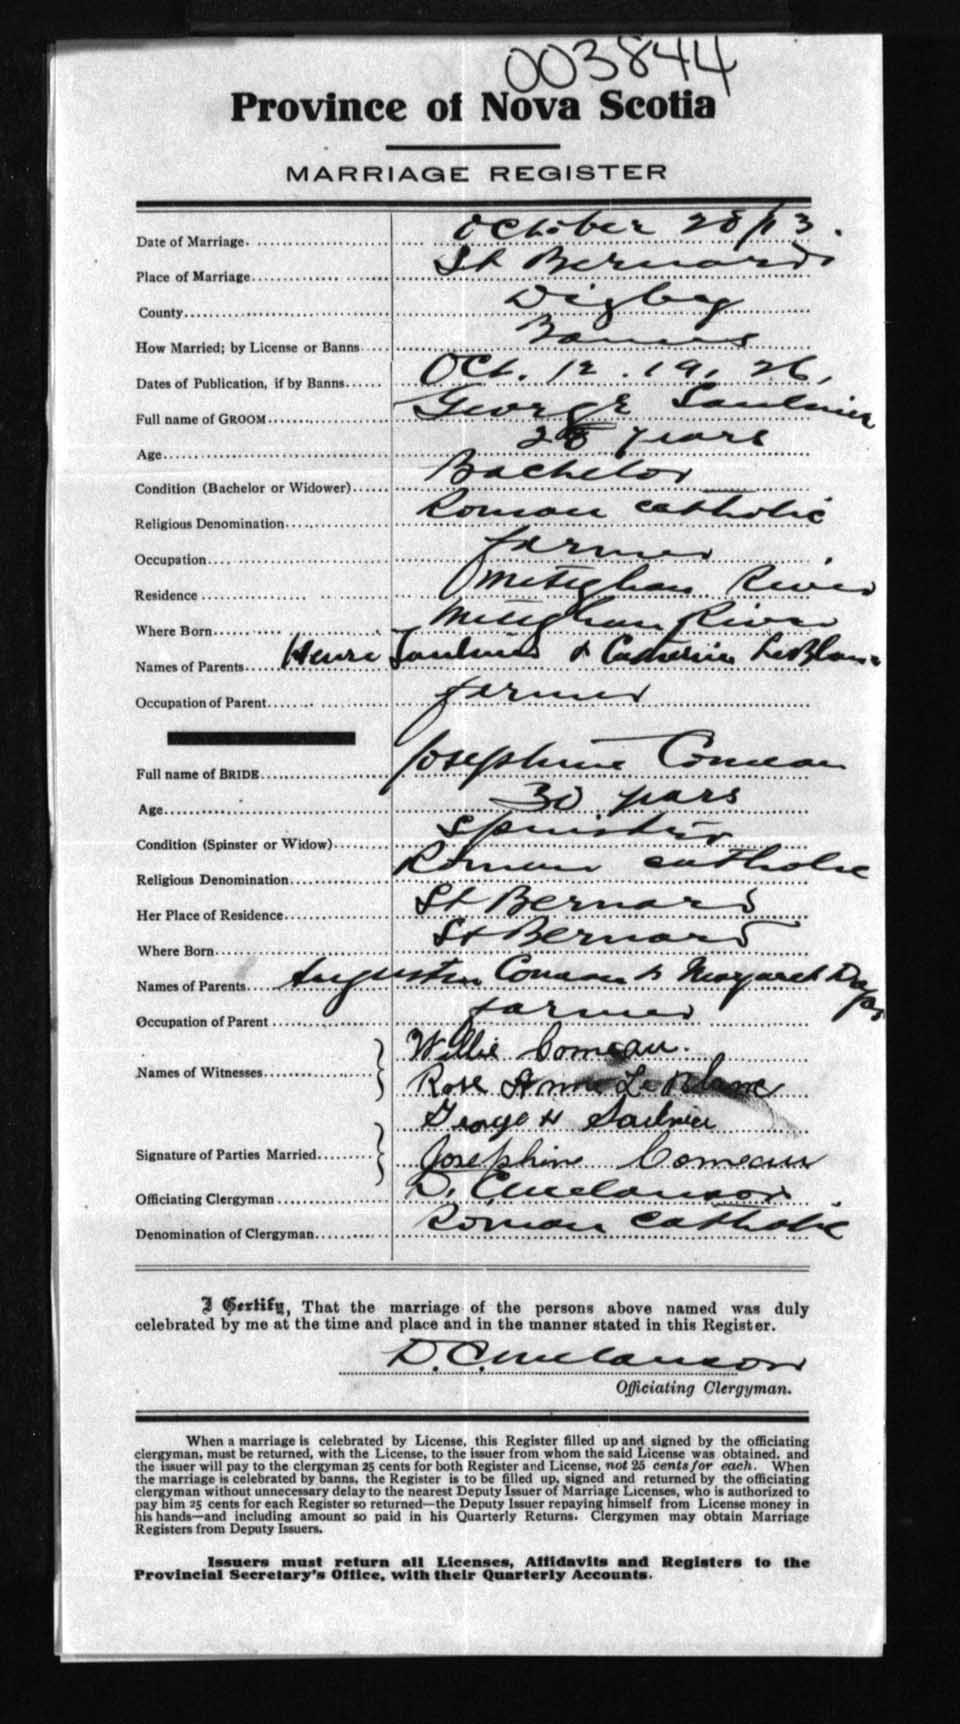 003844
Province of Nova Scotia
MARRIAGE REGISTER
Date of Marriage. October 28/13.
Place of Marriage St Bernard
County Digby
How Married; by License or Banns Banns
Dates of Publication, if by Banns Oct. 12. 19, 26,
Full name of GROOM George Saulnier
Age years
Condition (Bachelor or Widower) Bachelor
Religious Denomination Roman catholic
Occupation farmer
Residence Meteghan River
Where Born Meteghan River
Names of Parents Henri Saulnier & Catherine LeBlanc
Occupation of Parent farmer
Full name of BRIDE Josephine Comeau
Age 30 years
Condition (Spinster or Widow) Spinster
Religious Denomination Roman catholic
Her Place of Residence St Bernard
Where Born St Bernard
Names of Parents Augustin Comeau & Margaret
Occupation of Parent farmer
Names of Witnesses Willie Comeau.
Rose Anne LeBlanc
George H Saulnier
Signature of Parties Married Josephine Comeau
Officiating Clergyman D. C. Melanson
Denomination of Clergyman Roman catholic
I Certify, That the marriage of the persons above named was duly
celebrated by me at the time and place and in the manner stated in this Register.
D. C. Melanson
Officiating Clergyman.
When a marriage is celebrated by License, this Register filled up and signed by the officiating
clergyman, must be returned, with the License, to the issuer from whom the said License was obtained, and
the issuer will pay to the clergyman 25 cents for both Register and License, not 25 cents for each. When
the marriage is celebrated by banns, the Register is to be filled up, signed and returned by the officiating
clergyman without unnecessary delay to the nearest Deputy Issuer of Marriage Licenses, who is authorized to
pay him 25 cents for each Register so returned—the Deputy Issuer repaying himself from License money in
his hands—and including amount so paid in his Quarterly Returns. Clergymen may obtain Marriage
Registers from Deputy Issuers.
Issuers must return all Licenses, Affidavits and Registers to the
Provincial Secretary's Office, with their Quarterly Accounts.